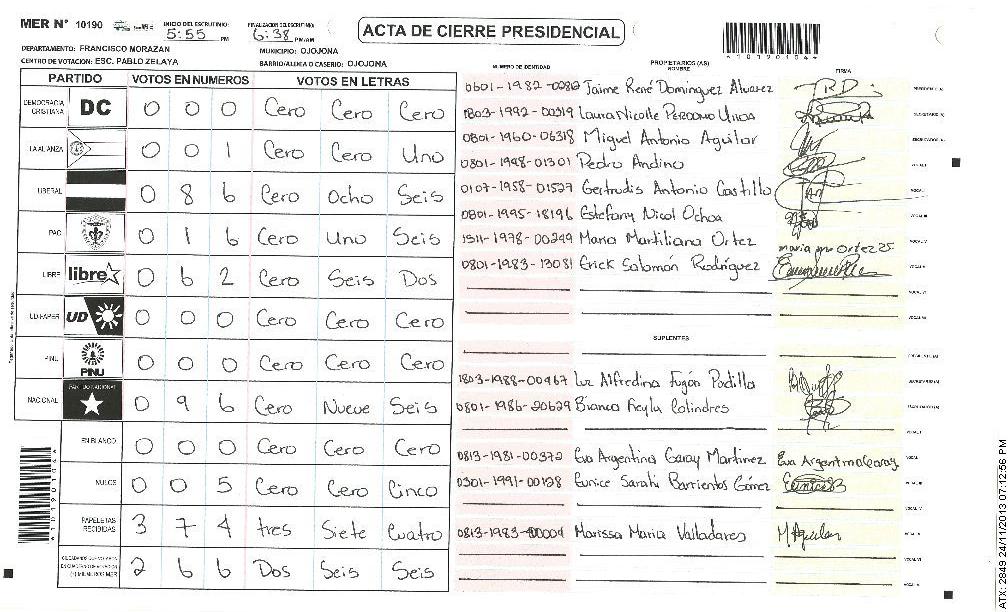 MER N° 10190
INICIO DEL ESCRUTINIO: 5:55 PM
FINALIZACION DEL ESCRUTINIO: 6:38 PM/AM
ACTA DE CIERRE PRESIDENCIAL
DEPARTAMENTO: FRANCISCO MORAZAN
MUNICIPIO: OJOJONA
CENTRO DE VOTACION: ESC. PABLO ZELAYA
BARRIO/ALDEA O CASERIO: OJOJONA
PARTIDO VOTOS EN NUMEROS VOTOS EN LETRAS
DEMOCRACIA CRISTIANA DC 0 0 0 Cero Cero Cero
LA ALIANZA 0 0 1 Cero Cero Uno
LIBERAL 0 8 6 Cero Ocho Seis
PAC 0 1 6 Cero Uno Seis
LIBRE libre 0 6 2 Cero Seis Dos
UD-FAPER UD 0 0 0 Cero Cero Cero
PINU PINU 0 0 0 Cero Cero Cero
NACIONAL PARTIDO NACIONAL 0 9 6 Cero Nueve Seis
EN BLANCO 0 0 0 Cero Cero Cero
NULOS 0 0 5 Cero Cero Cinco
PAPELETAS RECIBIDAS 3 7 4 tres Siete Cuatro
2 6 6 Dos Seis Seis
PROPIETARIOS (AS)
NUMERO DE IDENTIDAD NOMBRE FIRMA
Jaime René Dominguez Alvarez
1803-1992-00319 Laura Nicolle Perdomo
0801-1960-06318 Miguel Antonio Aguilar
0801-1948-01301 Pedro Andino
0107-1958-01527 Gertrudis Antonio Castillo
0801-1995-18196 Estefany Nicol Ochoa
1511-1978-00249 Maria Martiliana Ortez
0801-1983-13081 Erick Salomón Rodríguez
SUPLENTES
1803-1988-00467 Luz Alfredina Padilla
0801-1986-20629 Bianca Keyla Colindres
0813-1981-00372 Eva Argentina Garay Martinez Eva Argentina Garay
0301-1991-00128 Eunice Sarahi Barrientos Gómez
0813-1983-00004 Marissa Maria Valladares
4101901044
ATX: 2849 24/11/2013 07:12:56 PM